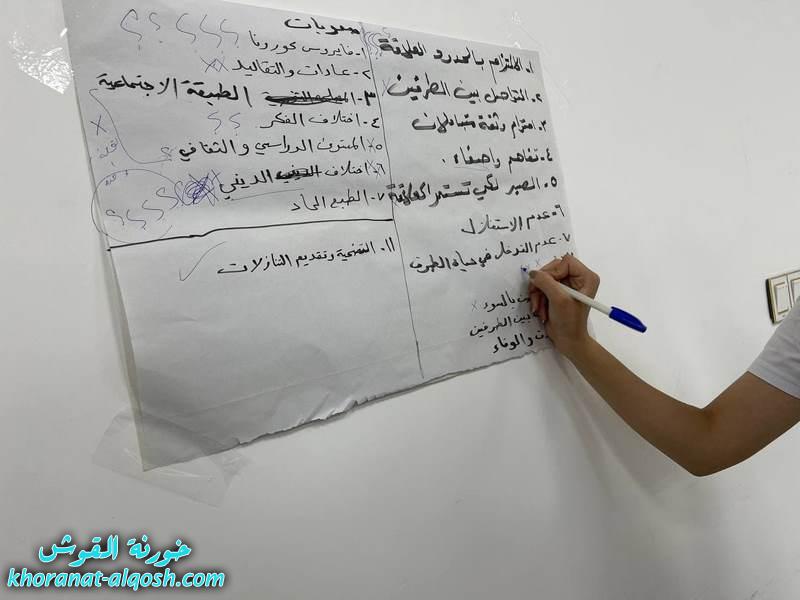 ١. الالتزام بالحدود العلاقة
٢. التواصل بين الطرفين
٣. احترام وثقة متبادلان
٤. تفاهم واصغاء.
٥. الصبر لكي تستمر العلاقة
٦. عدم الاستغلال
٧. عدم التدخل في حياة الطرف
بالسوء
بين الطرفين
والوفاء
صعوبات
١. فايروس كورونا
٢. عادات والتقاليد
٣. الطبقة الاجتماعية
٤. اختلاف الفكر
٥. المستوى الدراسي والثقافي
٦. اختلاف الديني
٧. الطبع الحاد
١١. التضحية وتقديم التنازلات
خورنة القوش
khoranat-alqosh.com